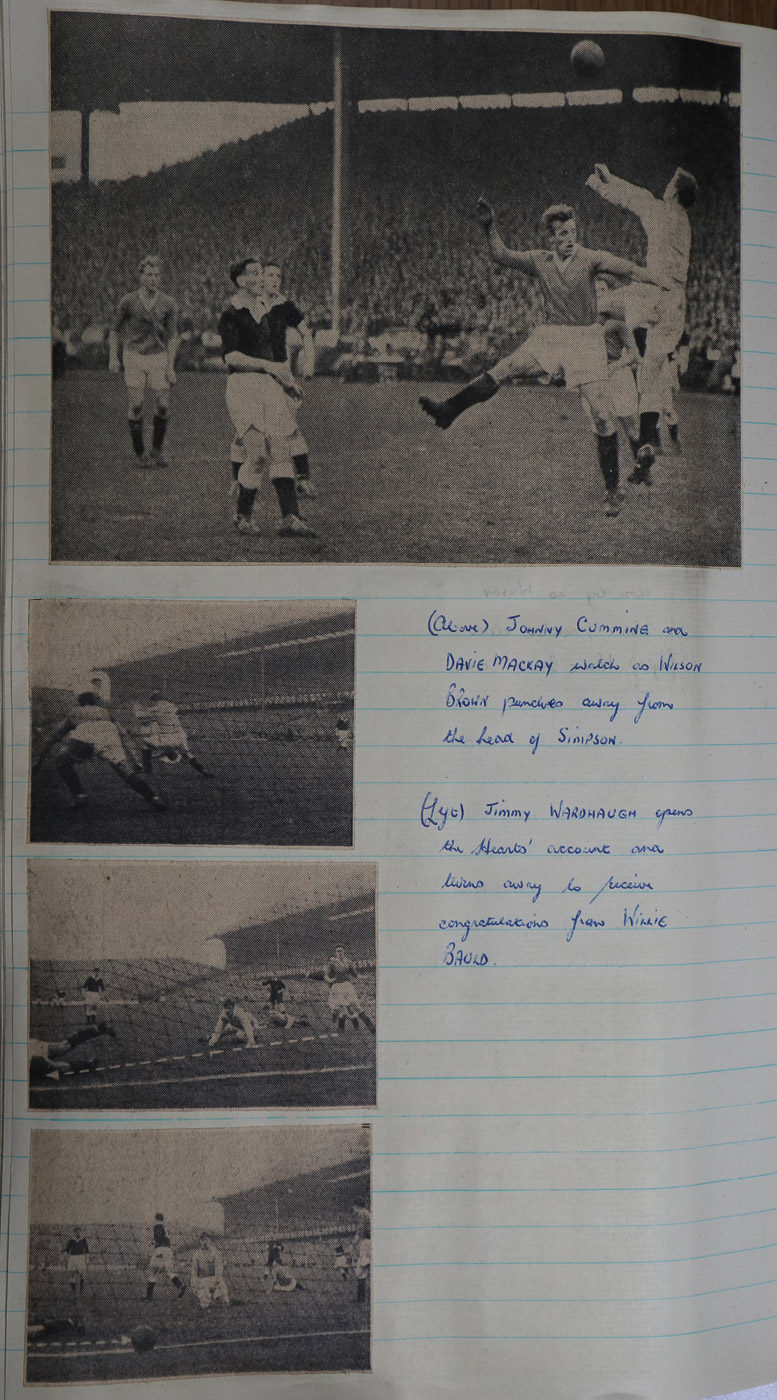 (Above) JOHNNY CUMMING and
DAVIE MACKAY watch as WILSON
BROWN punches away from
the head of SIMPSON.
(Left) Jimmy WARDHAUGH opens
the Hearts' account and
turns away to receive
congratulations from WILLIE
BAULD.